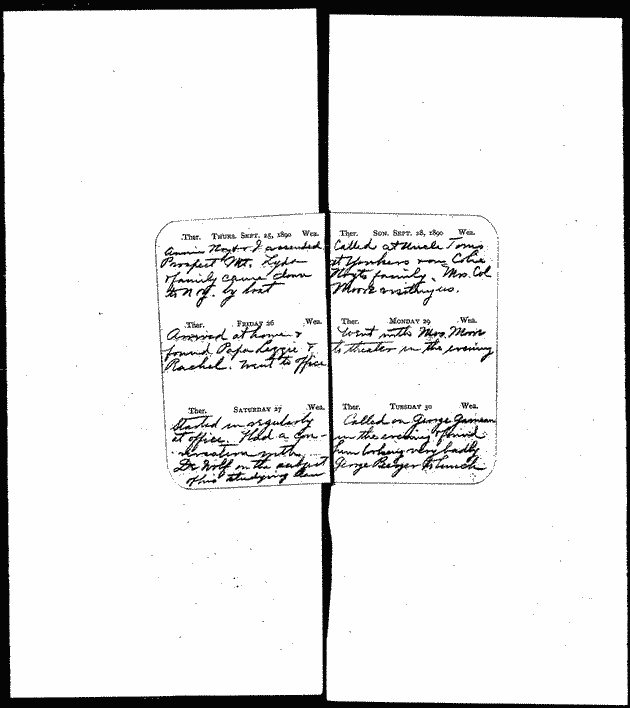 Ther. THURS. SEPT. 25, 1890 Wea.
Annie Hoyt & I ascended
Prospect Mt. Lyda
& family came down
to N.Y. by boat
Ther. FRIDAY 26 Wea.
Arrived at home &
found Papa Lizzie &
Rachel. Went to office
Ther. SATURDAY 27 Wea.
Started in regularly
at office. Had a con-
versation with
Dr Wolf on the subject
of his studying
Ther. SUN. SEPT. 28, 1890 Wea.
Called at Uncle Tom's
at Yonkers
Hoyts family. Mrs. Col
Moore visiting us.
Ther. MONDAY 29 Wea.
Went with Mrs. Moore
to theater in the evening
Ther. TUESDAY 30 Wea.
Called on George
in the evening & found
him looking very badly
George Berger to lunch